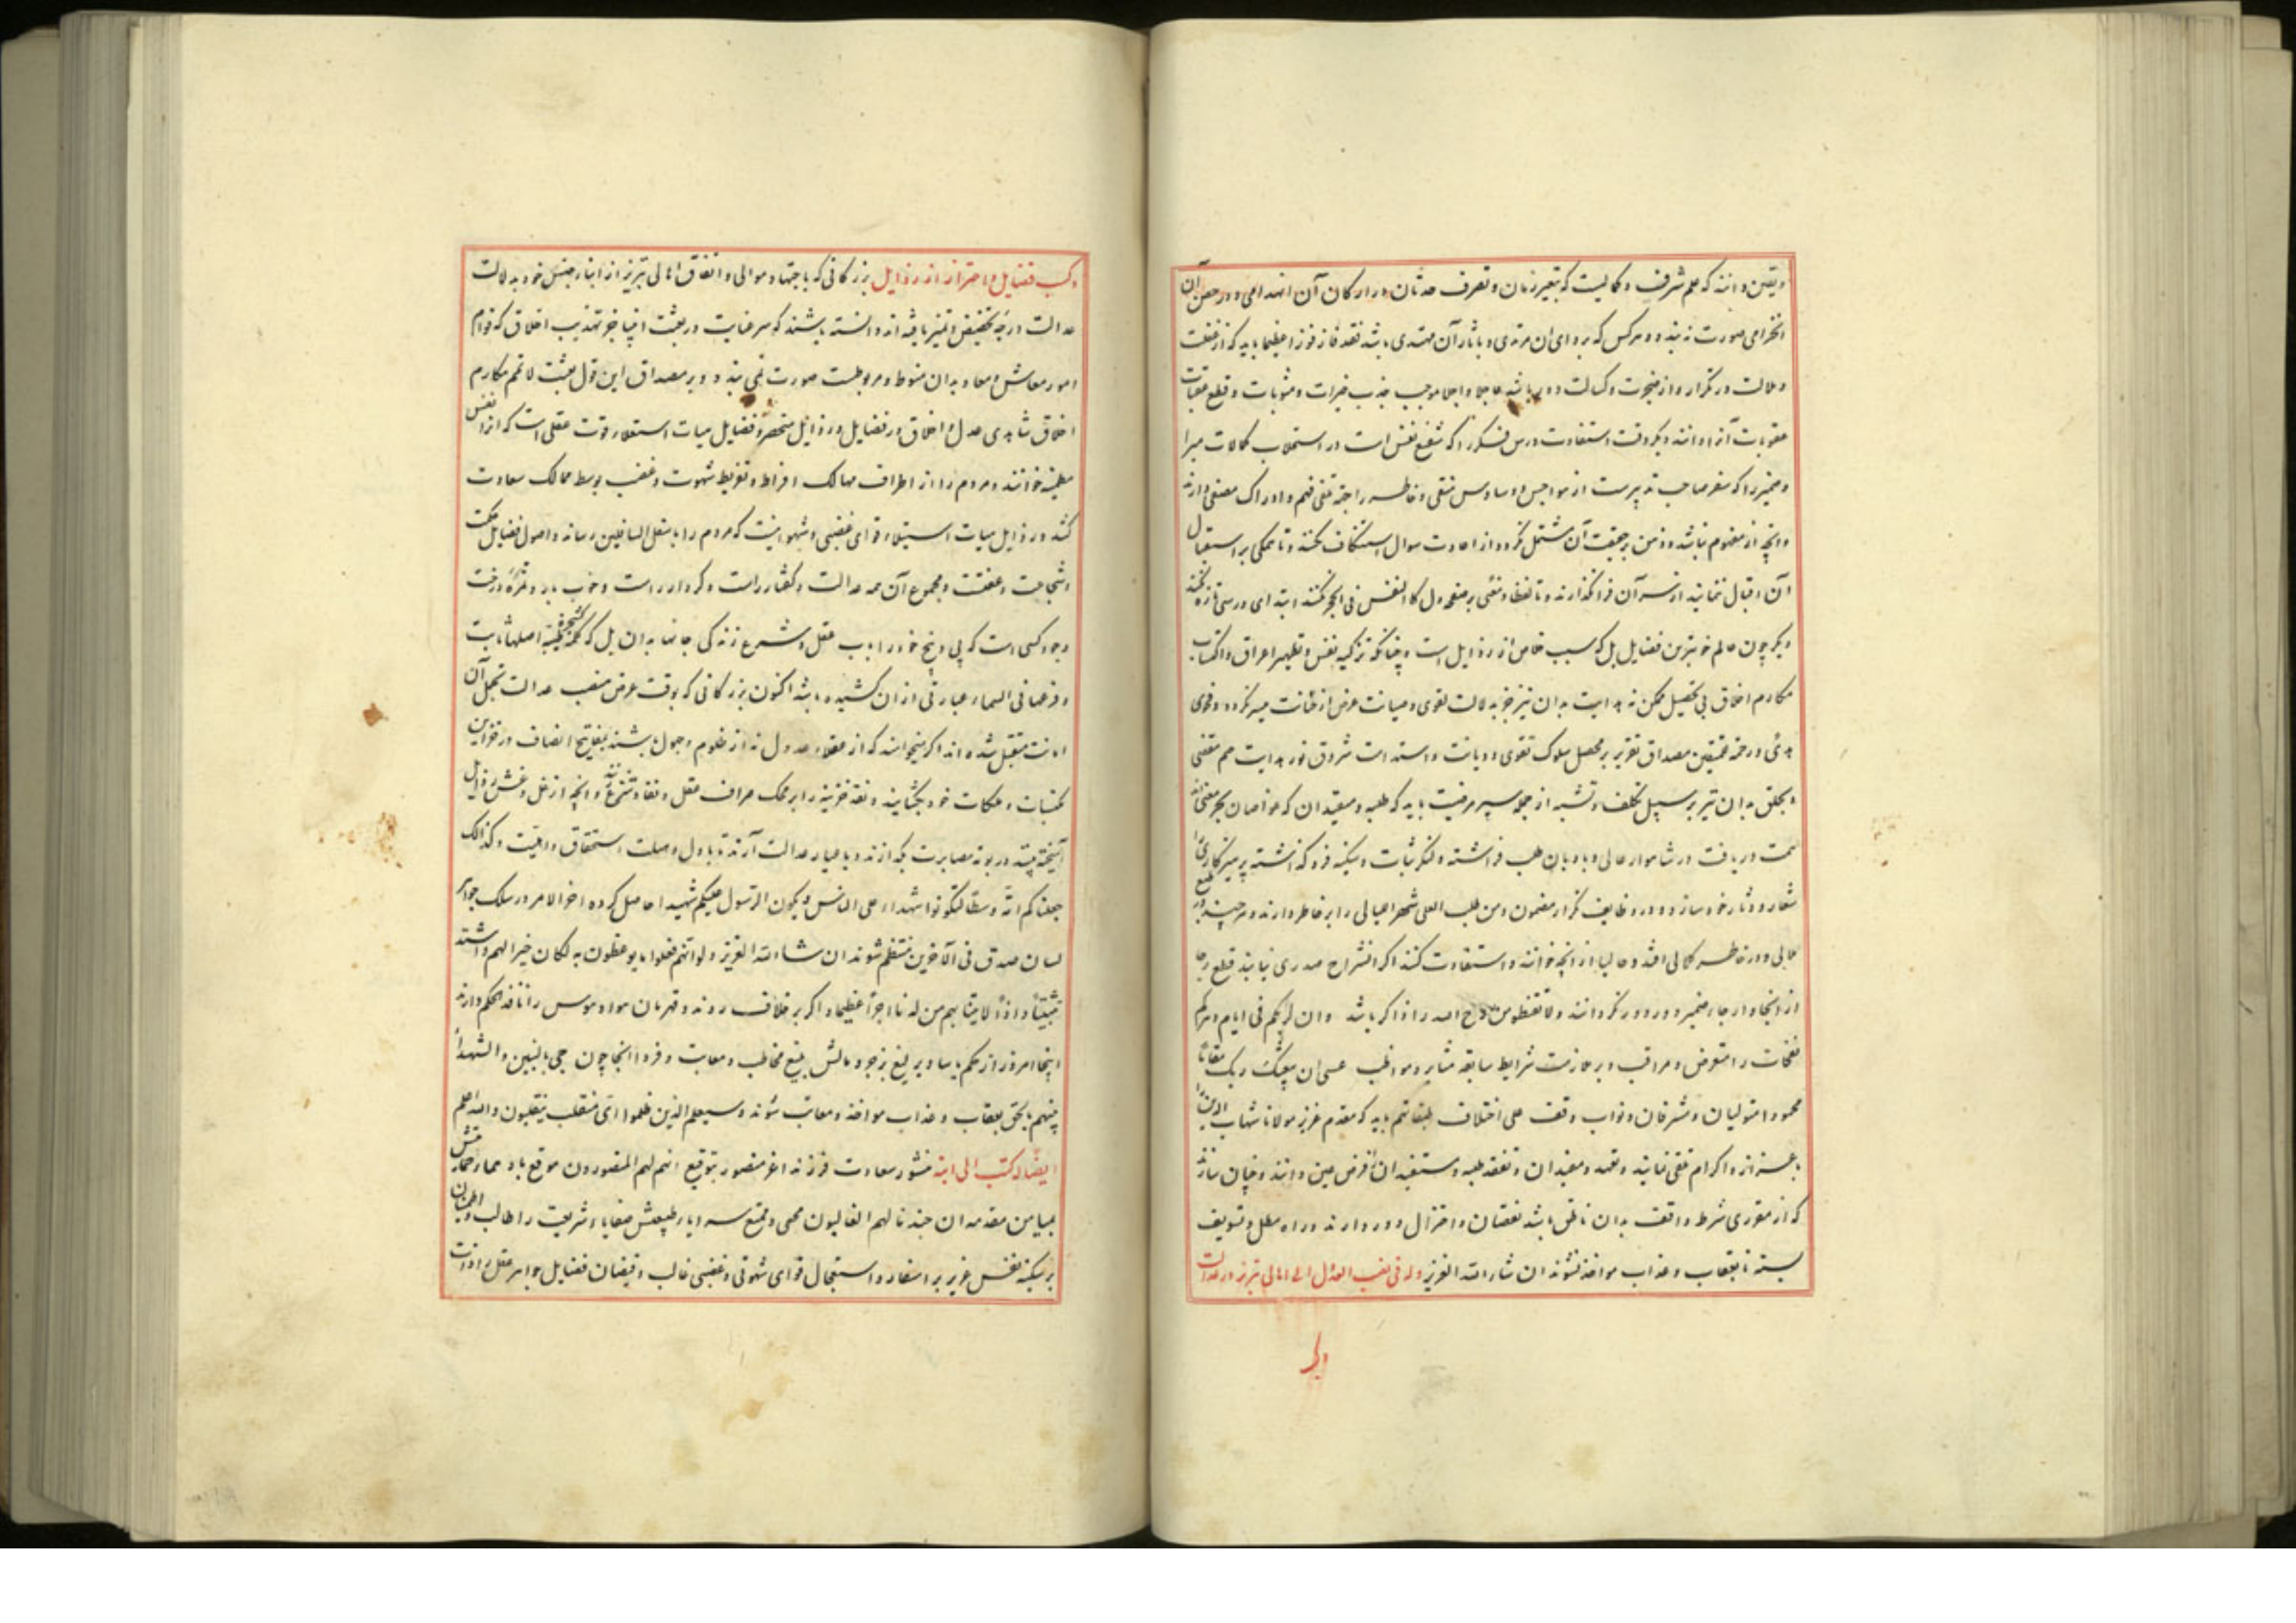 و یقین دانند که علم شرف و کمالیست که بتغیر زمان و تصرف حدثان در ارکان آن انهدامی و در حصن آن
انخرامی صورت نبندد و هر کس که برد ای آن مرتدی و باثار آن مهتدی باشد فقد فاز فوزا عظیما باید که از غفلت
و ملالت در تکرار و از ضجرت و کسالت دور باشد عاجلا و اجلا موجب جذب خیرات و مثوبات و قطع عقبات
عقوبات آنرا دانند دیگر وقت استفادت درس فکر را که شفیع نفس است در استجلاب کمالات مبرا
و ضمیر را که سفر صاحب تدبیرست از هواجس و وساوس منقی و خاطر را جهة تلقی فهم و ادراک مصفی دارند
و آنچه از مفهوم نباشد و ذهن بر حقیقت آن مشتمل نگردد از اعادت سوال استنکاف نکنند و تا تملکی بر استقبال
آن اقبال ننمایند از سر آن فرا نگذارند و تا لفظا و معنی بر منقول کالنقش فی الحجر نکنند ابتدای درسی تازه نکنند
دیگر چون عالم خوبترین فضایل بل که سبب خلاص از رذایل است و چنانکه تزکیه نفس و تطهیر اعراق و اکتساب
مکارم اخلاق بی تحصیل ممکن نه هدایت بدان نیز جز بدلالت تقوی و صیانت عرض از خیانت میسر نگردد و فحوی
هدی و رحمة للمتقین مصداق تقریر بر محصل سلوک تقوی و دیانت و استدامت شروق نور هدایت هم مقتضی
و تخلق بدان نیز بر سبیل تکلف و تشبه از جمله سیر مرضیت باید که طلبه و مستفیدان که غواصان بحر معنی اند
سمت دریافت در شاهوار عالی و بادبان طلب فراشته و لنگر ثبات و سکینه فرو گذاشته پرهیزکاری را
شعار و دثار خود سازند و در وظایف تکرار مضمون و من طلب العلی سهر اللیالی را بر خاطر دارند و هر چند در طبع
ملالی و در خاطر کلالی افتد و حالیا از آنچه خوانند و استفادت کنند اگر انشراح صدری نیابند قطع رجا
از انجا و ارجاء ضمیر دور دور نگردانند و لا تقنطوا من روح الله را ذاکر باشد و ان لربکم فی ایام دهرکم
نفحات را متعرض و مراقب و بر ملازمت شرایط سابقه مثابر و مواظب عسی ان یبعثک ربک مقاما
محمودا متولیان و مشرفان و نواب وقف علی اختلاف طبقاتهم باید که مقدم عزیز مولانا شهاب الدین را
باعزاز و اکرام تلقی نمایند و تعهد و مفیدان و تفقد طلبه و مستفیدان از فرض عین دانند و چنان سازند
که از مقرری شرط واقف بدان ناطق باشد نقصان و اختزال دور دارند و راه مطل و تسویف
بسته تا بعقاب و عذاب مواخذ نشوند ان شاء الله العزیز وله فی نصب العدل الی اهالی تبریز در عدالت
ولر
و کسب فضایل و احتراز از رذایل بزرگانی که باجتهاد موالی و اتفاق اهالی تبریز از ابناء جنس خود بدلالت
عدالت درجه تخصیص و تمیز یافته اند دانسته باشند که سر عنایت در بعثت انبیا جز تهذیب اخلاق که قوام
امور معاش و معاد بدان منوط و مربوطست صورت نمی بندد و بر مصداق این قول بعثت لاتمم مکارم
اخلاق شاهدی عدل و اخلاق در فضایل و رذایل منحصر و فضایل هیات استعلاء قوت عقلی است که انرا نفس
مطمئنه خوانند و مردم را از اطراف مهالک افراط و تفریط شهوت و غضب بوسط ممالک سعادت
کشد و رذایل هیات استیلاء قوای غضبی و شهوانیست که مردم را باسفل السافلین رساند و اصول فضایل حکمت
و شجاعت و عفتست و مجموع آن همه عدالت و گفتار راست و کردار راست و خوب بار و ثمره درخت
وجود کسی است که پی و بیخ خود را باب عقل و شرع زندگی جانها بدان بل که کلمة طیبة کشجرة طیبة اصلها ثابت
و فرعها فی السماء عبارتی از ان کشیده باشد اکنون بزرگانی که بوقت عرض منصب عدالت تحمل آن
امانت متقبل شده اند اگر میخواهند که از عقلاء عدول نه از ظلوم و جهول باشند بمفاتیح انصاف در خزاین
مکتسبات و ملکات خود بگشایند و نقد خزینه را بر محک صراف عقل و نقاد شرع زنند و آنچه از غل و غش رذایل
آمیخته بینند در بوته مصابرت بگدازند و با عیار عدالت آرند تا باول وهلت استحقاق و اهلیت و کذلک
جعلناکم امة وسطا لتکونوا شهداء علی الناس و یکون الرسول علیکم شهیدا حاصل کرده اخر الامر در سلک جواهر
لسان صدق فی الاخرین منتظم شوند ان شاء الله العزیز و لو انهم فعلوا ما یوعظون به لکان خیرا لهم و اشد
تثبیتا و اذا لاتیناهم من لدنا اجرا عظیما و اگر بر خلاف روند و قهرمان هوا و هوس را نافذ الحکم دارند
اینجا امروز از حکم یاسا و یرلیغ بزجر و مالش بلیغ مخاطب و معاتب و فردا انجا چون جیء بالنبیین و الشهداء
بینهم بالحق بعقاب و عذاب مواخذ و معاقب شوند و سیعلم الذین ظلموا ای منقلب ینقلبون و الله اعلم
ایضا له کتب الی ابنه منشور سعادت فرزند اعز منصور بتوقیع انهم لهم المنصورون موقع باد
بمیامن مقدمه ان جندنا لهم الغالبون محمی و ممتع
بر سکینه نفس عزیز بر استعار و استعجال قوای شهوتی و غضبی غالب و فیضان فضایل جواهر عقل را ذات